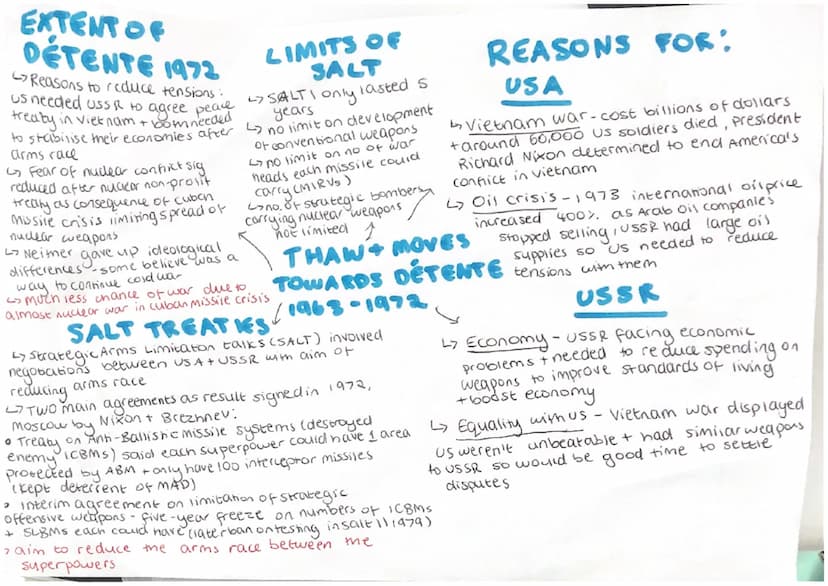 EXTENT OF
DÉTENTE 1972
↳ Reasons to reduce tensions:
US needed USSR to agree peace
treaty in Vietnam + both needed
to stabilise their economies after
arms race
↳ Fear of nuclear conflict sig
reduced after nuclear non-profit
treaty as consequence of cuban
missile crisis limiting spread of
nuclear weapons
↳ Neither gave up ideological
differences - some believe was a
way to continue cold war
↳ Much less chance of war due to
almost nuclear war in cuban missile crisis
LIMITS OF
SALT
↳ SALT 1 only lasted 5
years
↳ no limit on development
of conventional weapons
↳ no limit on no of war
heads each missile could
carry (MIRVs)
↳ no. of strategic bombers
carrying nuclear weapons
not limited
REASONS FOR:
USA
↳ Vietnam war - cost billions of dollars
+ around 60,000 US soldiers died, President
Richard Nixon determined to end America's
conflict in Vietnam
↳ Oil crisis - 1973 international oil price
increased 400% as Arab oil companies
stopped selling, USSR had large oil
supplies so US needed to reduce
tensions with them
THAW + MOVES
TOWARDS DÉTENTE
1963 - 1972
USSR
↳ Economy - USSR facing economic
problems + needed to reduce spending on
weapons to improve standards of living
+ boost economy
↳ Equality with US - Vietnam war displayed
US weren't unbeatable + had similar weapons
to USSR so would be good time to settle
disputes
SALT TREATIES
↳ Strategic Arms Limitation talks (SALT) involved
negotiations between USA + USSR with aim of
reducing arms race
↳ Two main agreements as result signed in 1972,
Moscow by Nixon + Brezhnev:
• Treaty on Anti-Ballistic missile systems (destroyed
enemy ICBMs) said each superpower could have 1 area
protected by ABM + only have 100 interceptor missiles
(kept deterrent of MAD)
• Interim agreement on limitation of strategic
offensive weapons - five-year freeze on numbers of ICBMs
+ SLBMs each could have (later ban on testing in salt 11 1979)
> aim to reduce the arms race between the
superpowers